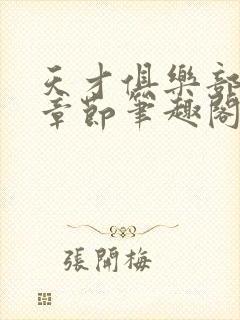 天才俱樂部
章節筆趣閣
張開梅